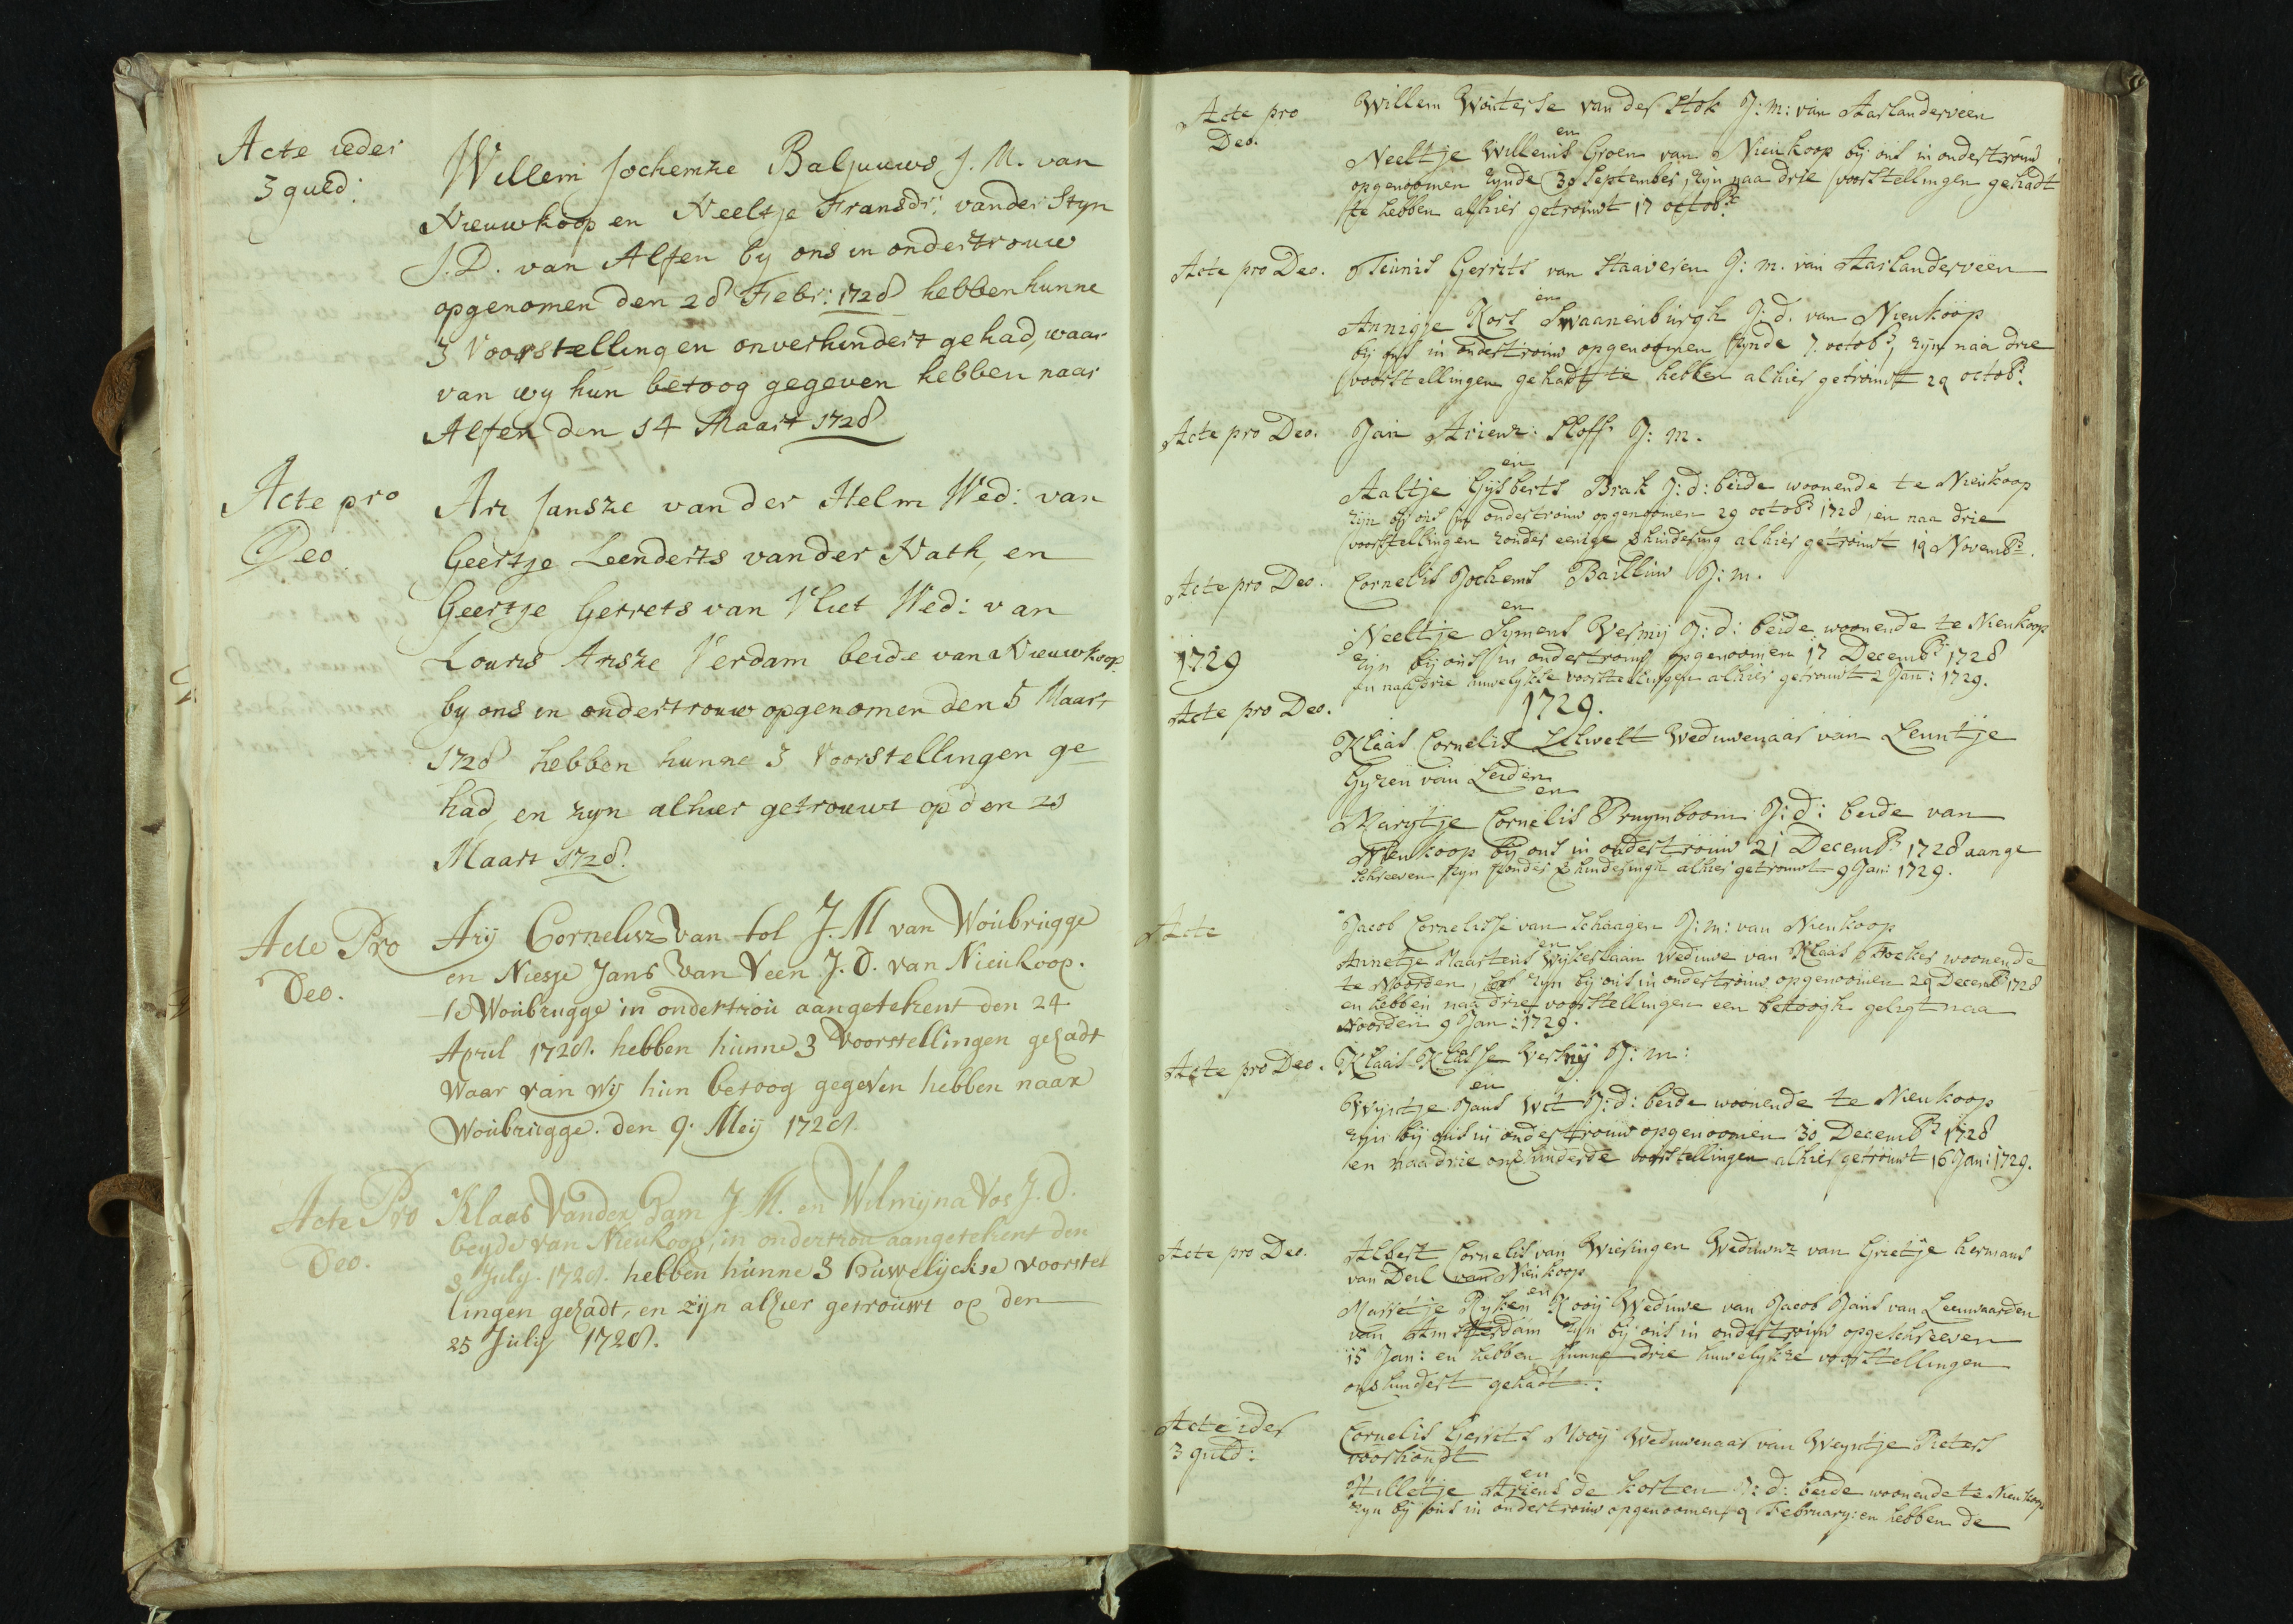 Acte ieder
3 guld:
Willem Jochemze Baljuuws J. M. van
Nieuwkoop en Neeltje Fransdr. vander Styn
J. D. van Alfen by ons in ondertrouw
opgenomen den 28 Febr: 1728 hebben hunne
3 Voorstellingen onverhindert gehad, waar
van wy hun betoog gegeven hebben naar
Alfen den 14 Maart 1728
Acte pro
Deo
Ari Janszе van der Helm Wed: van
Geertje Leenderts vander Nath, en
Geertje Gerrets van Vliet Wed: van
Louris Arisze Verdam beide van Nieuwkoop
by ons in ondertrouw opgenomen den 5 Maart
1728 hebben hunne 3 Voorstellingen ge
had, en zyn alhier getrouwt op den 21
Maart 1728.
Acte Pro
Deo.
Arij Cornelisz van tol J. M van Woubrugge
en Niesje Jans van Veen J. D. van Nieukoop.
te Woubrugge in ondertrou aangetekent den 24
April 1728. hebben hunne 3 Voorstellingen gehadt
Waar van Wij hun betoog gegeven hebben naar
Woubrugge. den 9. Meij 1728.
Acte Pro
Deo.
Klaas Vander Dam J. M. en Wilmijna Vos J. D.
beyde van Nieukoop, in ondertrou aangetekent den
8 July. 1728. hebben hunne 3 Huwelijckse voorstel
lingen gehadt, en zijn alhier getrouwt op den
25 July 1728.
Acte pro
Deo.
Willem Wouterse van der Stok J: m: van Aarlanderveen
en
Neeltje Willems Groen van Nieukoop bij ons in ondertrouw
opgenoomen zynde 30 September, zijn naa drie voorstellingen gehadt
te hebben alhier getrouwt 17 octobr
Acte pro Deo.
Teunis Gerrits van Staaveren J: m. van Aarlanderveen
en
Annigje Kors Swaanenburgh J: d. van Nieukoop
bij ons in ondertrouw opgenoomen zynde 7. octobr, zijn naa drie
voorstellingen gehadt te hebben alhier getrouwt 29 octobr.
Acte pro Deo.
Jan Ariensz: Sloff J: m.
en
Aaltje Gijsberts Brak J: d: beide woonende te Nieukoop
zijn bij ons in ondertrouw opgenoomen 29 octobr 1728, en naa drie
voorstellingen zonder eenige hindering alhier getrouwt 19 Novembr.
Acte pro Deo.
Cornelis Jochems Bailluw J: m.
en
Neeltje Symens Vermij J: d: beide woonende te Nieukoop
zijn bij ons in ondertrouw opgenoomen 17 Decembr 1728
en naa drie huwelykse voorstellingen alhier getrouwt 2 Jan: 1729.
1729
1729.
Acte pro Deo.
Klaas Cornelis Lelivelt Weduwenaar van Leuntje
Gyzen van Leiden
en
Marijtje Cornelis Pruymboom J: d: beide van
Nieukoop bij ons in ondertrouw 21 Decembr 1728 aange
schreeven zyn zonder hinderingh alhier getrouwt 9 Jan: 1729.
Acte
Jacob Cornelisse van Schaagen J: m: van Nieukoop
en
Annetje Maartens Wykerlaan weduwe van Klaas Foeker woonende
te Noorden, zyn bij ons in ondertrouw opgenoomen 29 Decembr 1728
en hebben naa drie voorstellingen een betoogh gelegt naa
Noorden 9 Jan: 1729.
Acte pro Deo.
Klaas Klaasse Verhy J: m:
en
Wyntje Jans Wit J: d: beide woonende te Nieukoop
zijn bij ons in ondertrouw opgenoomen 30 Decembr 1728
en naa drie onverhinderde voorstellingen alhier getrouwt 16 Jan: 1729.
Acte pro Deo.
Albert Cornelis van Wieringen Weduwnr van Grietje hermans
van Deil van Nieukoop
en
Marietje Ryken Kooij Weduwe van Jacob Jans van Leeuwaarden
van Amsterdam zyn bij ons in ondertrouw opgeschreeven
15 Jan: en hebben hunne drie huwelykze voorstellingen
onverhindert gehadt.
Acte ider
3 guld:
Cornelis Gerrits Mooij Weduwenaar van Weyntje Pieters
voorhondt
en
Hilletje Ariens de Korten J: d: beide woonende te Nieukoop
zyn bij ons in ondertrouw opgenoomen 9 February: en hebben de